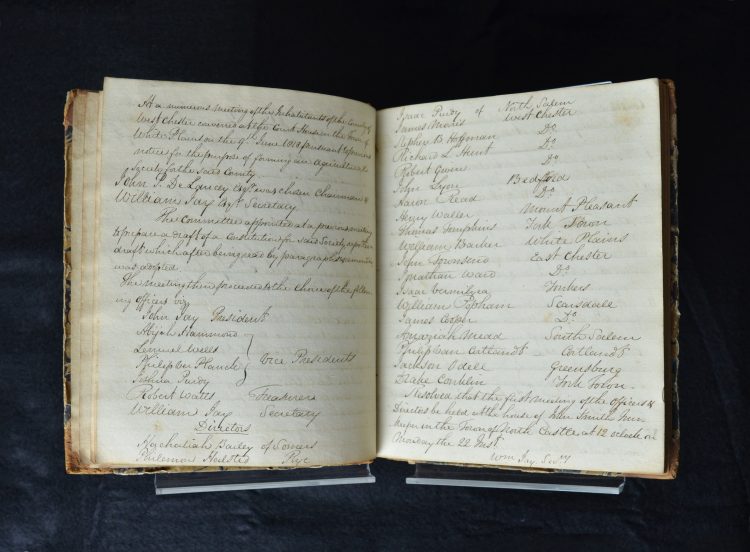 At a numerous meeting of the Inhabitants of the County of
West Chester convened at the Court House in the Town of
White Plains on the 9th June 1818 pursuant to previous
notice for the purpose of forming an Agricultural
Society for the said County
John P. De Lancey Esqr was chosen Chairman &
William Jay Esqr Secretary
The Committee appointed at a previous meeting
to prepare a draft of a Constitution for said Society reported
draft which after being read by paragraphs
was adopted
The meeting then proceeded to the choice of the follow
ing officers viz
John Jay President
Abijah Hammond
Lemuel Wells
Philip Van
Joshua Purdy
Vice Presidents
Robert Watts Treasurer
William Jay Secretary
Directors
Hezekiah Bailey of Somers
Philemon Halsted Rye
Isaac Purdy of North Salem
James Morris West Chester
Stephen B Hoffman Do
Richard L Hunt Do
Robert Givan Do
John Lyon Bedford
Aaron Read Do
Henry Waller Mount Pleasant
Thomas Tompkins York Town
William Barker White Plains
John Townsend East Chester
Jonathan Ward Do
Isaac Vermilyea Yonkers
William Popham Scarsdale
James Do
Amaziah Mead South Salem
Philip Van Cortlandt Cortlandt
Jackson Odell Greensburg
Conklin York Town.
Resolved that the first meeting of the officers &
Directors be held at the house of John Smith Inn
keeper in the Town of North Castle at 12 oclock on
Monday the 22 Inst
Wm Jay Secy